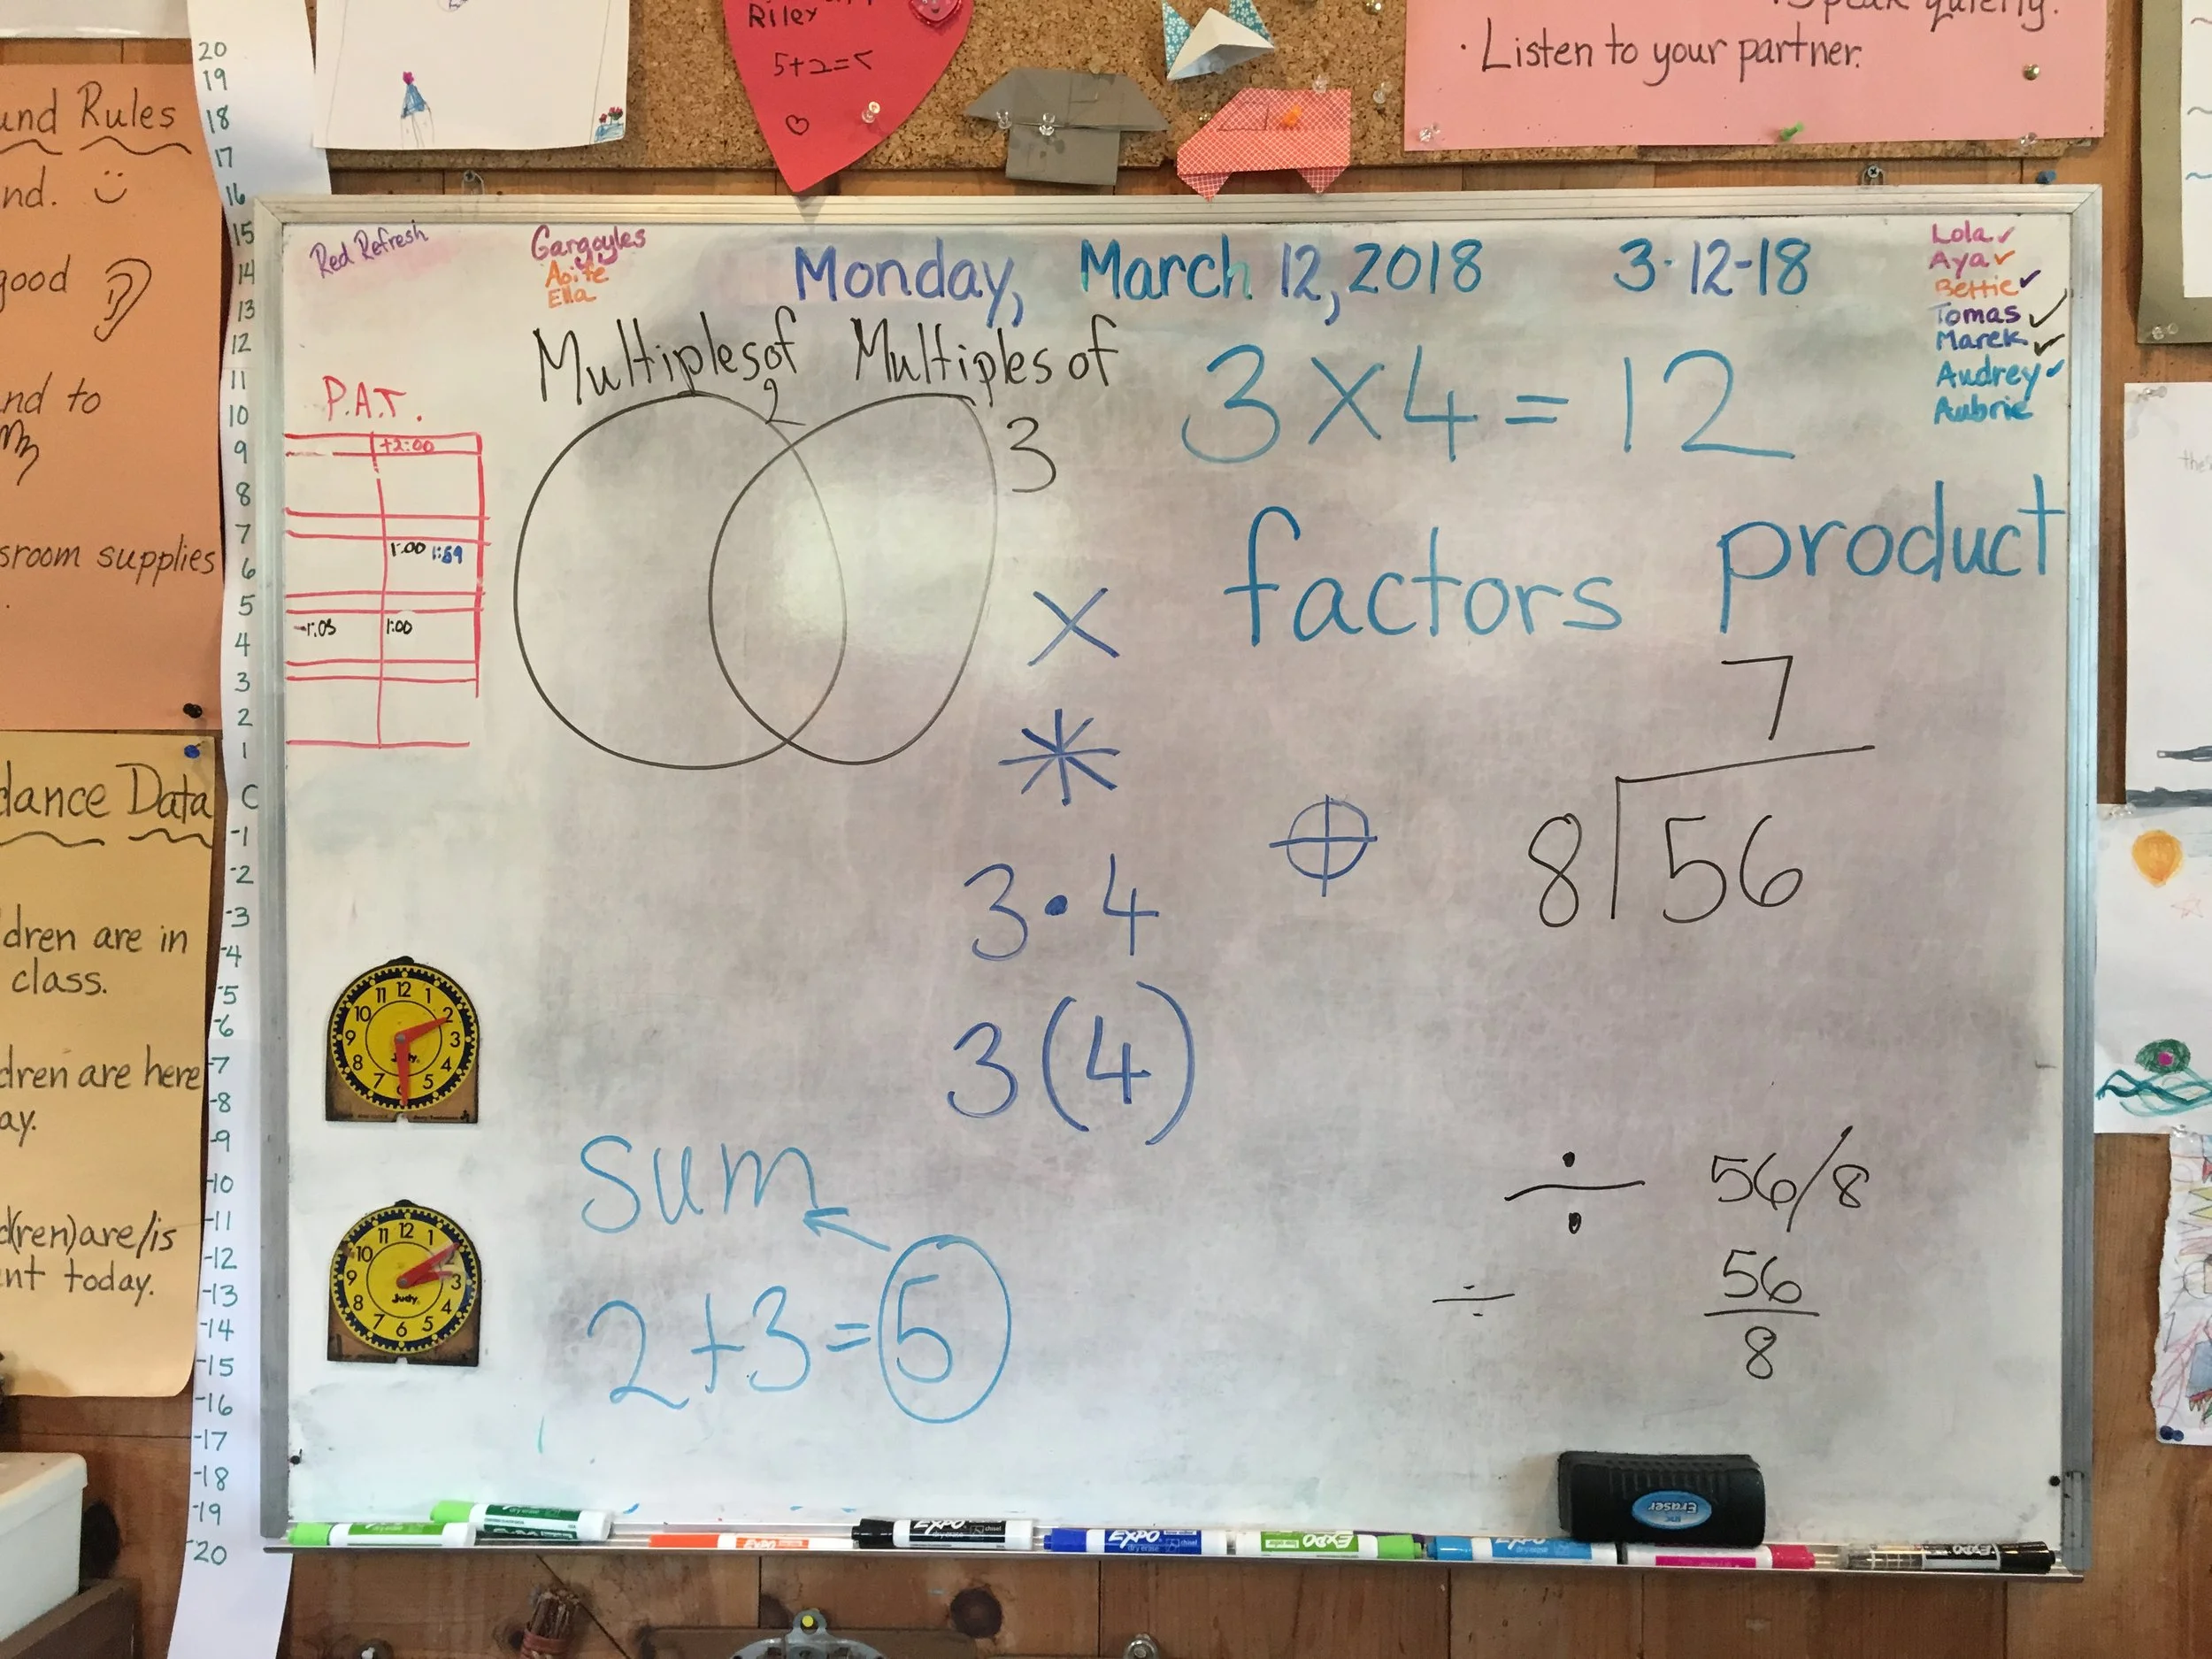 Riley
5+2=<
Speak quietly.
· Listen to your partner.
20
19
18
17
16
15
14
13
12
11
10
9
8
7
6
5
4
3
2
1
-1
-2
-3
-4
-5
-6
-7
-8
-9
-10
-11
-12
-13
-14
-15
-16
-17
-18
-19
-20
Rules
good
nd to
supplies
Data
dren are in
class.
dren are here
are/is
today.
Red Refresh
Gargoyles
Aoife
Ella
Monday, March 12, 2018 3-12-18
Lola
Aya
Bettie
Tomas
Marek
Audrey
Aubrie
P.A.T.
+2:00
1:00 1:59
-1:05 1:00
Multiples of 2
Multiples of 3
3 × 4 = 12
factors product
×
*
3 • 4
3(4)
7
8 56
÷ 56/8
÷ 56
8
sum
2+3=5
12
1
2
3
4
5
6
7
8
9
10
11
Judy
12
1
2
3
4
5
6
7
8
9
10
11
Judy
Eraser
EXPO
EXPO
EXPO
EXPO
EXPO